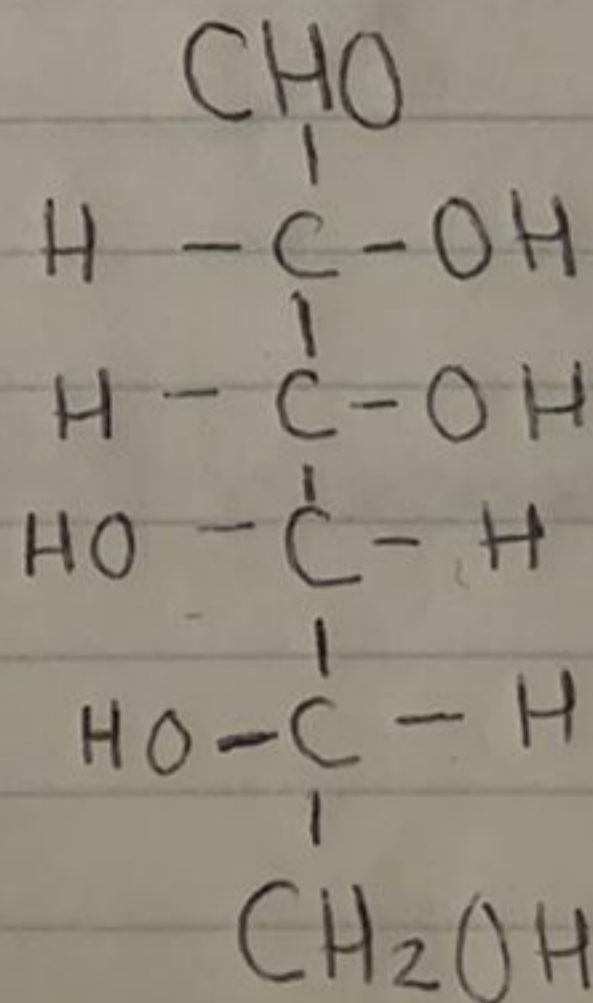 CHO
H - C - OH
H - C - OH
HO - C - H
HO - C - H
CH₂OH